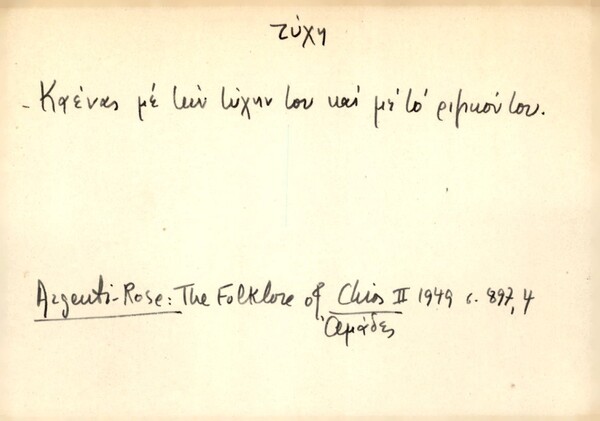 τύχη
- Καένας μέ τήν τύχην του καί μέ τό ριζικόν του.
Argenti-Rose: The Folklore of Chios II 1949 σ. 897, 4
Ἀμάδες